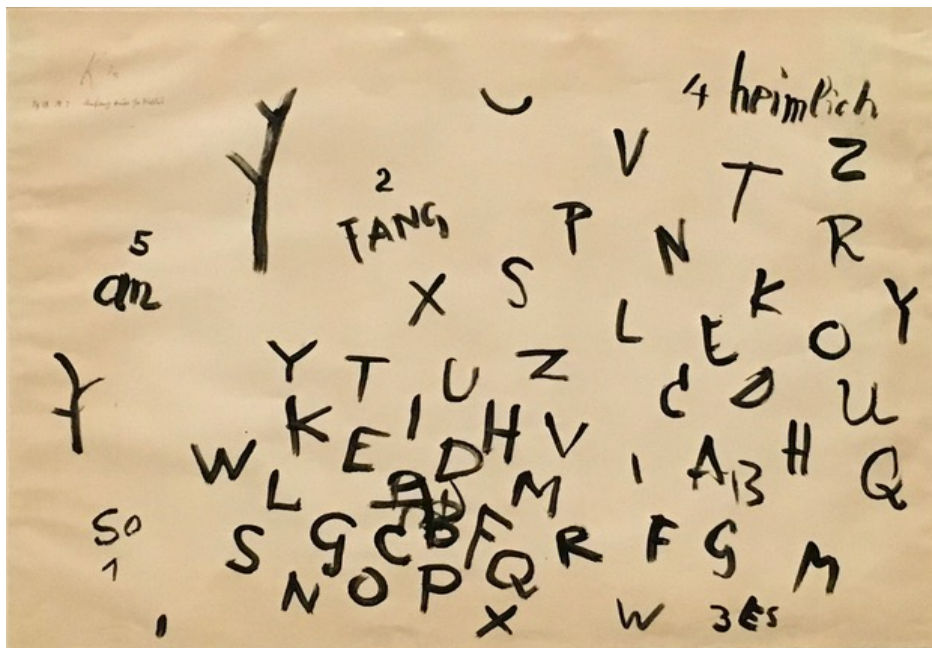 4 heimlich
V T Z
2
TANG P N R
5
am X S K Y
L E O
Y T U Z C D U
K E I H V H
W L D M I A B Q
A B
So S G C F R F G M
1 N O P Q
X W 3 Es